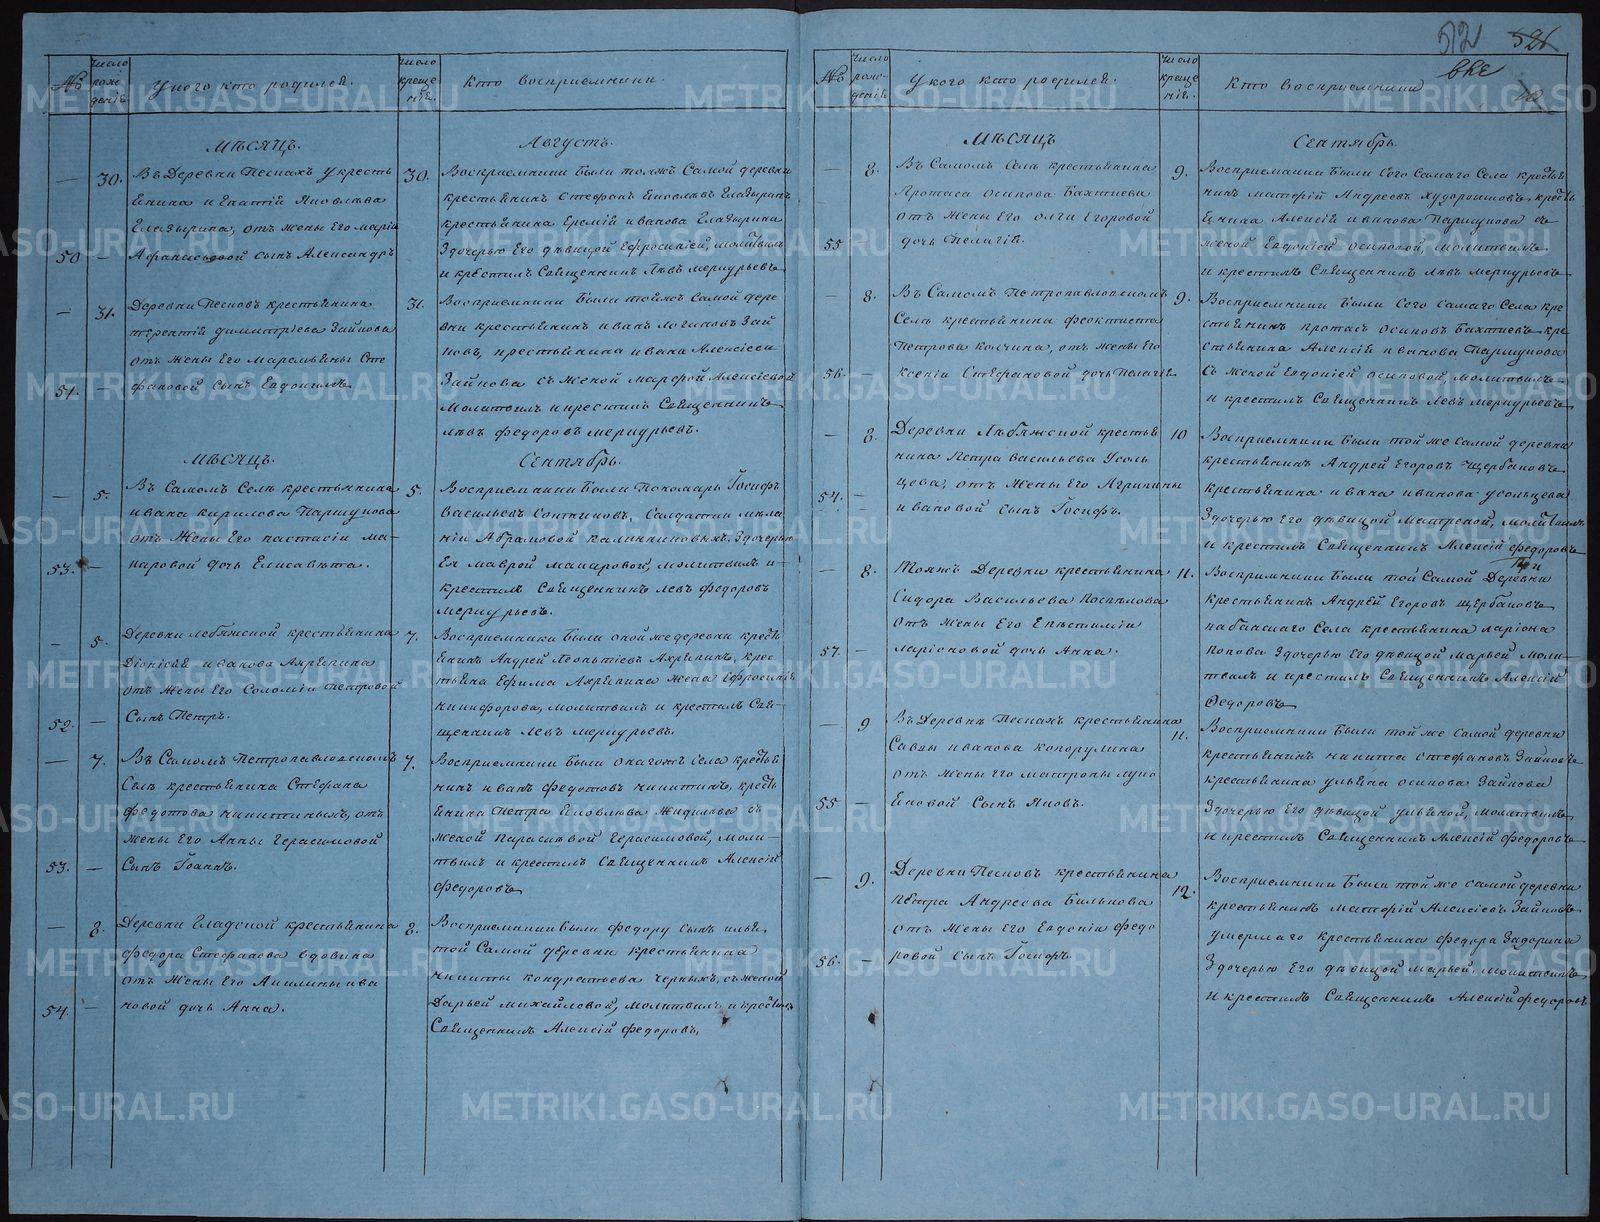 №
Число рожденія.
У кого кто родился.
Число крещенія.
Кто восприемники.
Мѣсяцъ.
Августъ.
30.
Въ Деревни Песнахъ у кресть
янина Игнатій Яковлева
Гладырина, отъ жены Его Марій
50
Афанасьевой сынъ Александръ
30.
Восприемники были тояжъ Самой деревни
крестьянинъ Стефанъ Яковлевъ Гладыринъ
крестьянина Еремій Иванова Гладырина
Здочерью Его дѣвицой Ефросиніей, молитвилъ
и крестилъ Священникъ Левъ Меркурьевъ
31.
Деревни Песковъ крестьянина
терентій димитріева Зайкова
отъ жены Его Маремьяны Сте
51.
фановой сынъ Евдокимъ
31.
Восприемники были тойжъ Самой дере
вни крестьянинъ Иванъ Логиновъ Зай
ковъ, крестьянина Ивана Алексіева
Зайкова съ женой Марфой Алексіевой
Молитвилъ и крестилъ Священникъ
Левъ Федоровъ Меркурьевъ.
Мѣсяцъ.
Сентябрь.
5.
Въ Самомъ Селѣ крестьянина
Ивана Кирилова Паршукова
отъ жены Его Настасіи Ма-
53.
каровой дочь Елисавѣта.
5.
Восприемники были Пономарь Іосифъ
Васильевъ Сотниковъ, Салдатки мела
ніи Абрамовой Калинниковыхъ, Здочерью
Ея Маврой Макаровой, молитвилъ и
крестилъ Священникъ Левъ Федоровъ
Меркурьевъ.
5.
Деревни Лебяжской крестьянина
Діонисія Иванова Ахряпина
отъ жены Его Соломіи Петровой
52.
Сынъ Петръ.
7.
Восприемники были оной же деревни кресть
янинъ Андрей Леонтіевъ Ахряпинъ, крес
тьяна Ефима Ахряпина жена Ефросинія
Никифорова, молитвилъ и крестилъ Свя-
щенникъ Левъ Меркурьевъ.
7.
Въ Самомъ Петропавловскомъ
Селѣ крестьянина Стефана
Федотова Никитиныхъ, отъ
жены Его Анны Герасимовой
53.
Сынъ Іоаннъ.
7.
Восприемники были онагожъ села крестья
нинъ Иванъ Федотовъ Никитинъ, кресть
янина Петра Яковлева Жидилева съ
женой Параскевой Герасимовой, моли-
твилъ и крестилъ Священникъ Алексій
Федоровъ
8.
Деревни Гладской крестьянина
Федора Стефанова Вдовина
отъ жены Его Акилины Ива
54.
новой дочь Анна.
8.
Восприемники были Федору сынъ Илья
той Самой деревни крестьянина
Никиты Кондратьева Черныхъ, съ женой
Дарьей Михайловой, молитвилъ и крестилъ
Священникъ Алексій Федоровъ.
512
№
Число рожденія.
У кого кто родился.
Число крещенія.
Кто восприемники
Мѣсяцъ
Сентябрь.
8.
Въ Самомъ Селѣ крестьянина
Протаса Осипова Бахтиева
отъ жены Его Олги Егоровой
55
дочь Пелагій.
9.
Восприемники были Сего Самаго Села крестья
нинъ Матфій Андреевъ Худорошковъ, кресть
янина Алексій Иванова Паршукова съ
женой Евдокіей Осиповой, молитвилъ
и крестилъ Священникъ Левъ Меркурьевъ
8.
Въ Самомъ Петропавловскомъ
Села крестьянина Феоктиста
Петрова Колчина, отъ жены Его
56.
Ксеніи Стефановой дочь Пелагія
9.
Восприемники были Сего Самаго Села кре
стьянинъ Протасъ Осиповъ Бахтиевъ кре
стьянина Алексій Иванова Паршукова
съ женой Евдокіей Осиповой, молитвилъ
и крестилъ Священникъ Левъ Меркурьевъ
8.
Деревни Лебяжской крестья
нина Петра Васильева Усоль
54.
цева, отъ жены Его Агрипины
Ивановой сынъ Іосифъ.
10
Восприемники были той же самой деревни
крестьянинъ Андрей Егоровъ Щербаковъ
крестьянина Ивана Иванова Усольцева
Здочерью Его дѣвицой Матреной, молитвилъ
и крестилъ Священникъ Алексій Федоровъ
8.
Тояжъ Деревни крестьянина
Сидора Васильева Поспѣлова
отъ жены Его Епистиміи
57.
Ларіоновой дочь Анна.
11.
Восприемники были той Самой Деревни
крестьянинъ Андрей Егоровъ Щербаковъ
Кабанскаго Села крестьянина Ларіона
Попова Здочерью Его дѣвицой Марьей, моли-
твилъ и крестилъ Священникъ Алексій
Федоровъ
9
Въ Деревни Пескахъ крестьянина
Савы Иванова Копорулина
отъ жены Его Матроны Луко
55
яновой Сынъ Яковъ.
11.
Восприемники были той же самой деревни
крестьянинъ Никита Стефановъ Зайковъ
крестьянина Ульяна Осипова Зайкова
Здочерью Его дѣвицой Ульяной, молитвилъ
и крестилъ Священникъ Алексій Федоровъ
9.
Деревни Песковъ крестьянина
Петра Андреева Билькова
отъ жены Его Евдокіи Федо
56.
ровой сынъ Іосифъ.
12.
Восприемники были той же самой деревни
крестьянинъ Матфій Алексіевъ Зайковъ
умершаго крестьянина Федора Задорина
Здочерью Его дѣвицой Марьей, молитвилъ
и крестилъ Священникъ Алексій Федоровъ
METRIKI.GASO-URAL.RU